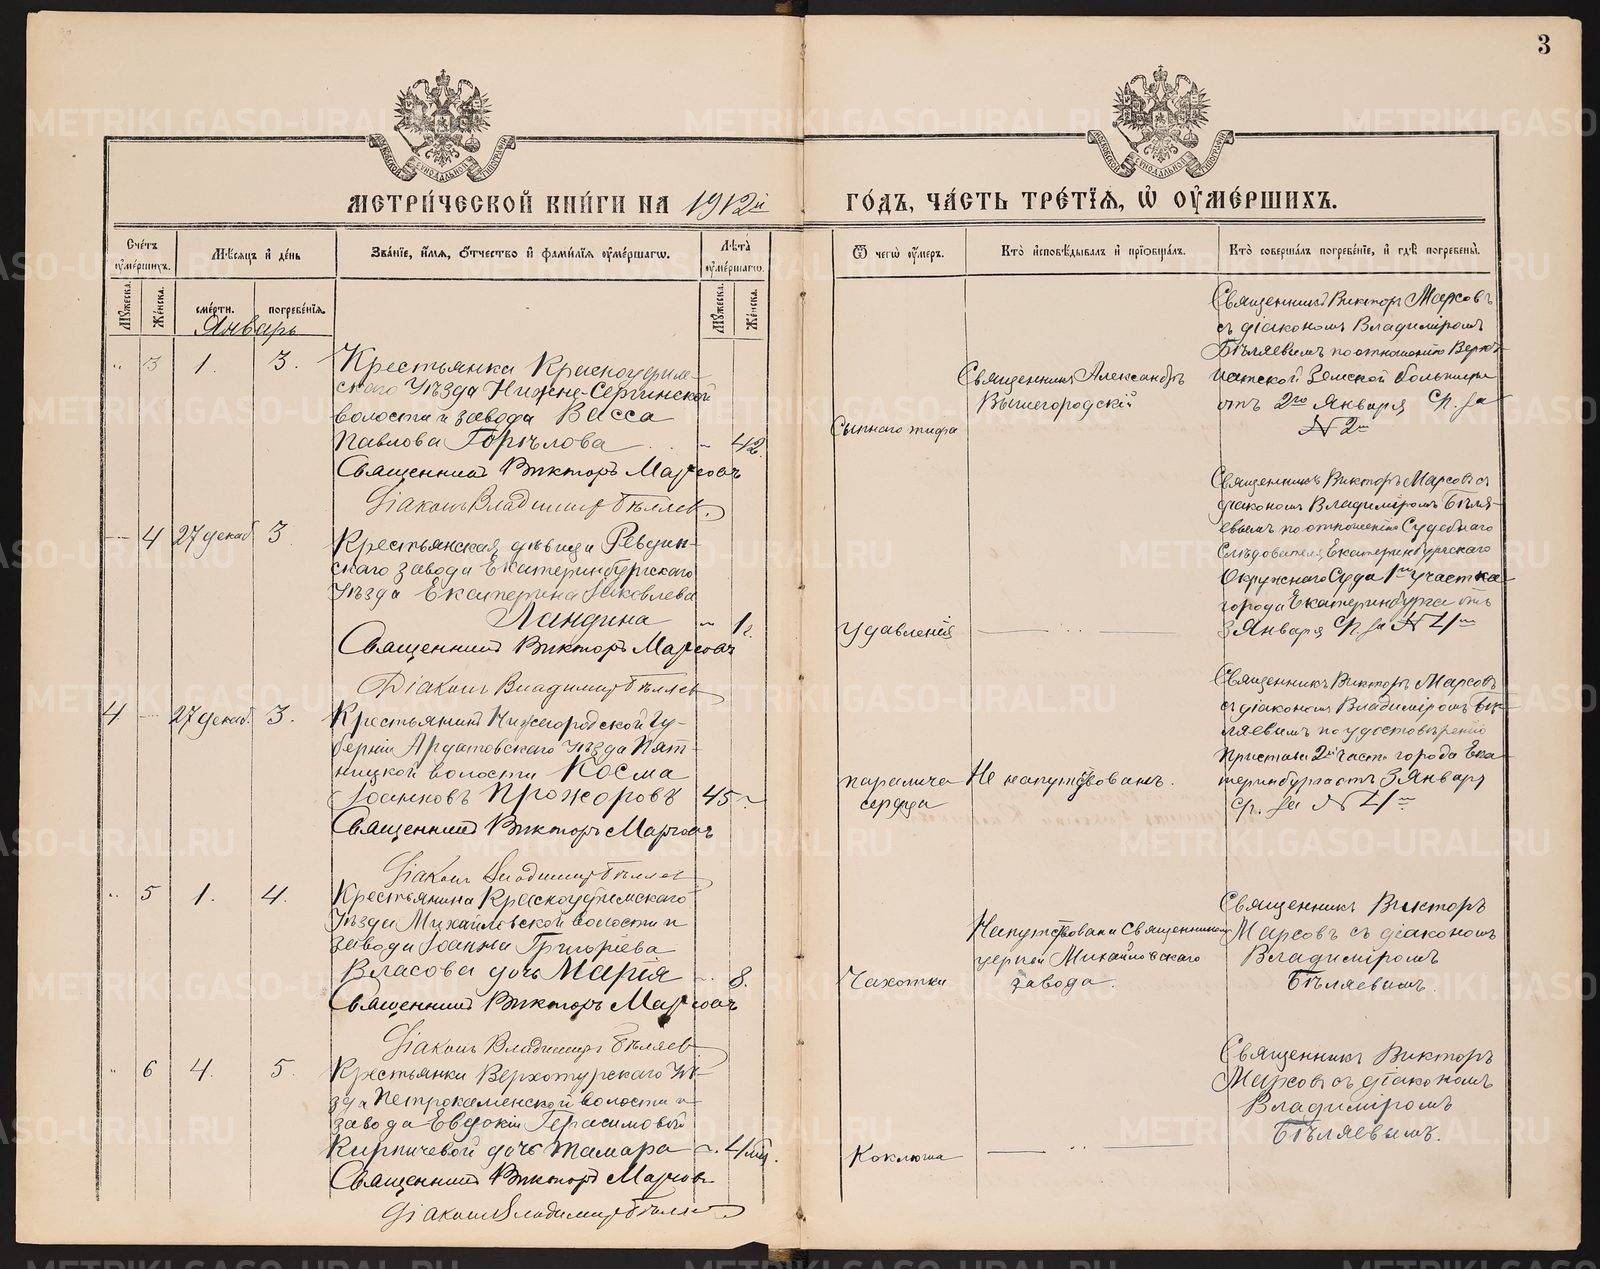 3
МЕТРИ́ЧЕСКОЙ КНИ́ГИ НА 1912й ГО́ДЪ, ЧА́СТЬ ТРЕ́ТІЯ, Ѽ ОУМЕ́РШИХЪ.
Сче́тъ оуме́ршихъ.
Му́жеска.
Же́нска.
Мѣ́сяцъ и де́нь
сме́рти.
погребе́нія.
Зва́ніе, и́мя, о́тчество и фами́лія оуме́ршагѡ.
Лѣ́та оуме́ршагѡ.
Му́жеска.
Же́нска.
Ѿ чегѡ̀ оу́меръ.
Кто̀ исповѣ́дывалъ и пріѡбща́лъ.
Кто̀ соверша́лъ погребе́ніе, и гдѣ̀ погребены̀.
Январь
" 3 1. 3.
Крестьянка Красноуфим-
скаго Уѣзда Нижне-Сергинской
волости и завода Васса
Павлова Горѣлова - 42
Священникъ Викторъ Марсовъ
Діаконъ Владимиръ Бѣляев.
Сыпнаго тифа
Священникъ Александръ
Вышегородскій
Священникъ Викторъ Марсовъ
съ діакономъ Владиміромъ
Бѣляевымъ по отношенію Верхъ-
Исетской Земской больницы
отъ 2го Января с/г. за
№ 2м
- 4 27 декаб. 3.
Крестьянская дѣвица Ревдин-
скаго завода Екатеринбургскаго
Уѣзда Екатерина Яковлева
Ландина - 1 г.
Священникъ Викторъ Марсовъ
Діаконъ Владимиръ Бѣляев
Удавленія
Священникъ Викторъ Марсовъ съ
діакономъ Владиміромъ Бѣля-
евымъ по отношенію Судебнаго
Слѣдователя Екатеринбургскаго
Окружнаго Суда 1го участка
города Екатеринбурга отъ
3 Января с/г. за № 4м
4 - 27 декаб. 3.
Крестьянинъ Нижегородской Гу-
берніи Ардатовскаго Уѣзда Пят-
ницкой волости Косма
Іоанновъ Прохоровъ 45 -
Священникъ Викторъ Марсовъ
Діаконъ Владимиръ Бѣляев
паралича
сердца
Не напутствованъ.
Священникъ Викторъ Марсовъ
съ діакономъ Владиміромъ Бѣ-
ляевымъ по удостовѣренію
Пристава 2й части города Ека-
теринбурга отъ 3 Января
с/г. за № 4м
" 5 1. 4.
Крестьянина Красноуфимскаго
Уѣзда Михайловской волости и
завода Іоанна Григоріева
Власова дочь Марія - 8.
Священникъ Викторъ Марсовъ
Діаконъ Владимиръ Бѣляев
Чахотки
Напутствована Священникомъ
церкви Михайловскаго
завода.
Священникъ Викторъ
Марсовъ съ діакономъ
Владиміромъ
Бѣляевымъ.
" 6 4. 5.
Крестьянки Верхотурскаго Уѣ-
зда Петрокаменской волости и
завода Евдокіи Герасимовой
Кирпичевой дочь Тамара -. 4 мѣс.
Священникъ Викторъ Марсовъ
Діаконъ Владимиръ Бѣляев
Коклюша
Священникъ Викторъ
Марсовъ съ діакономъ
Владиміромъ
Бѣляевымъ.
METRIKI.GASO-URAL.RU